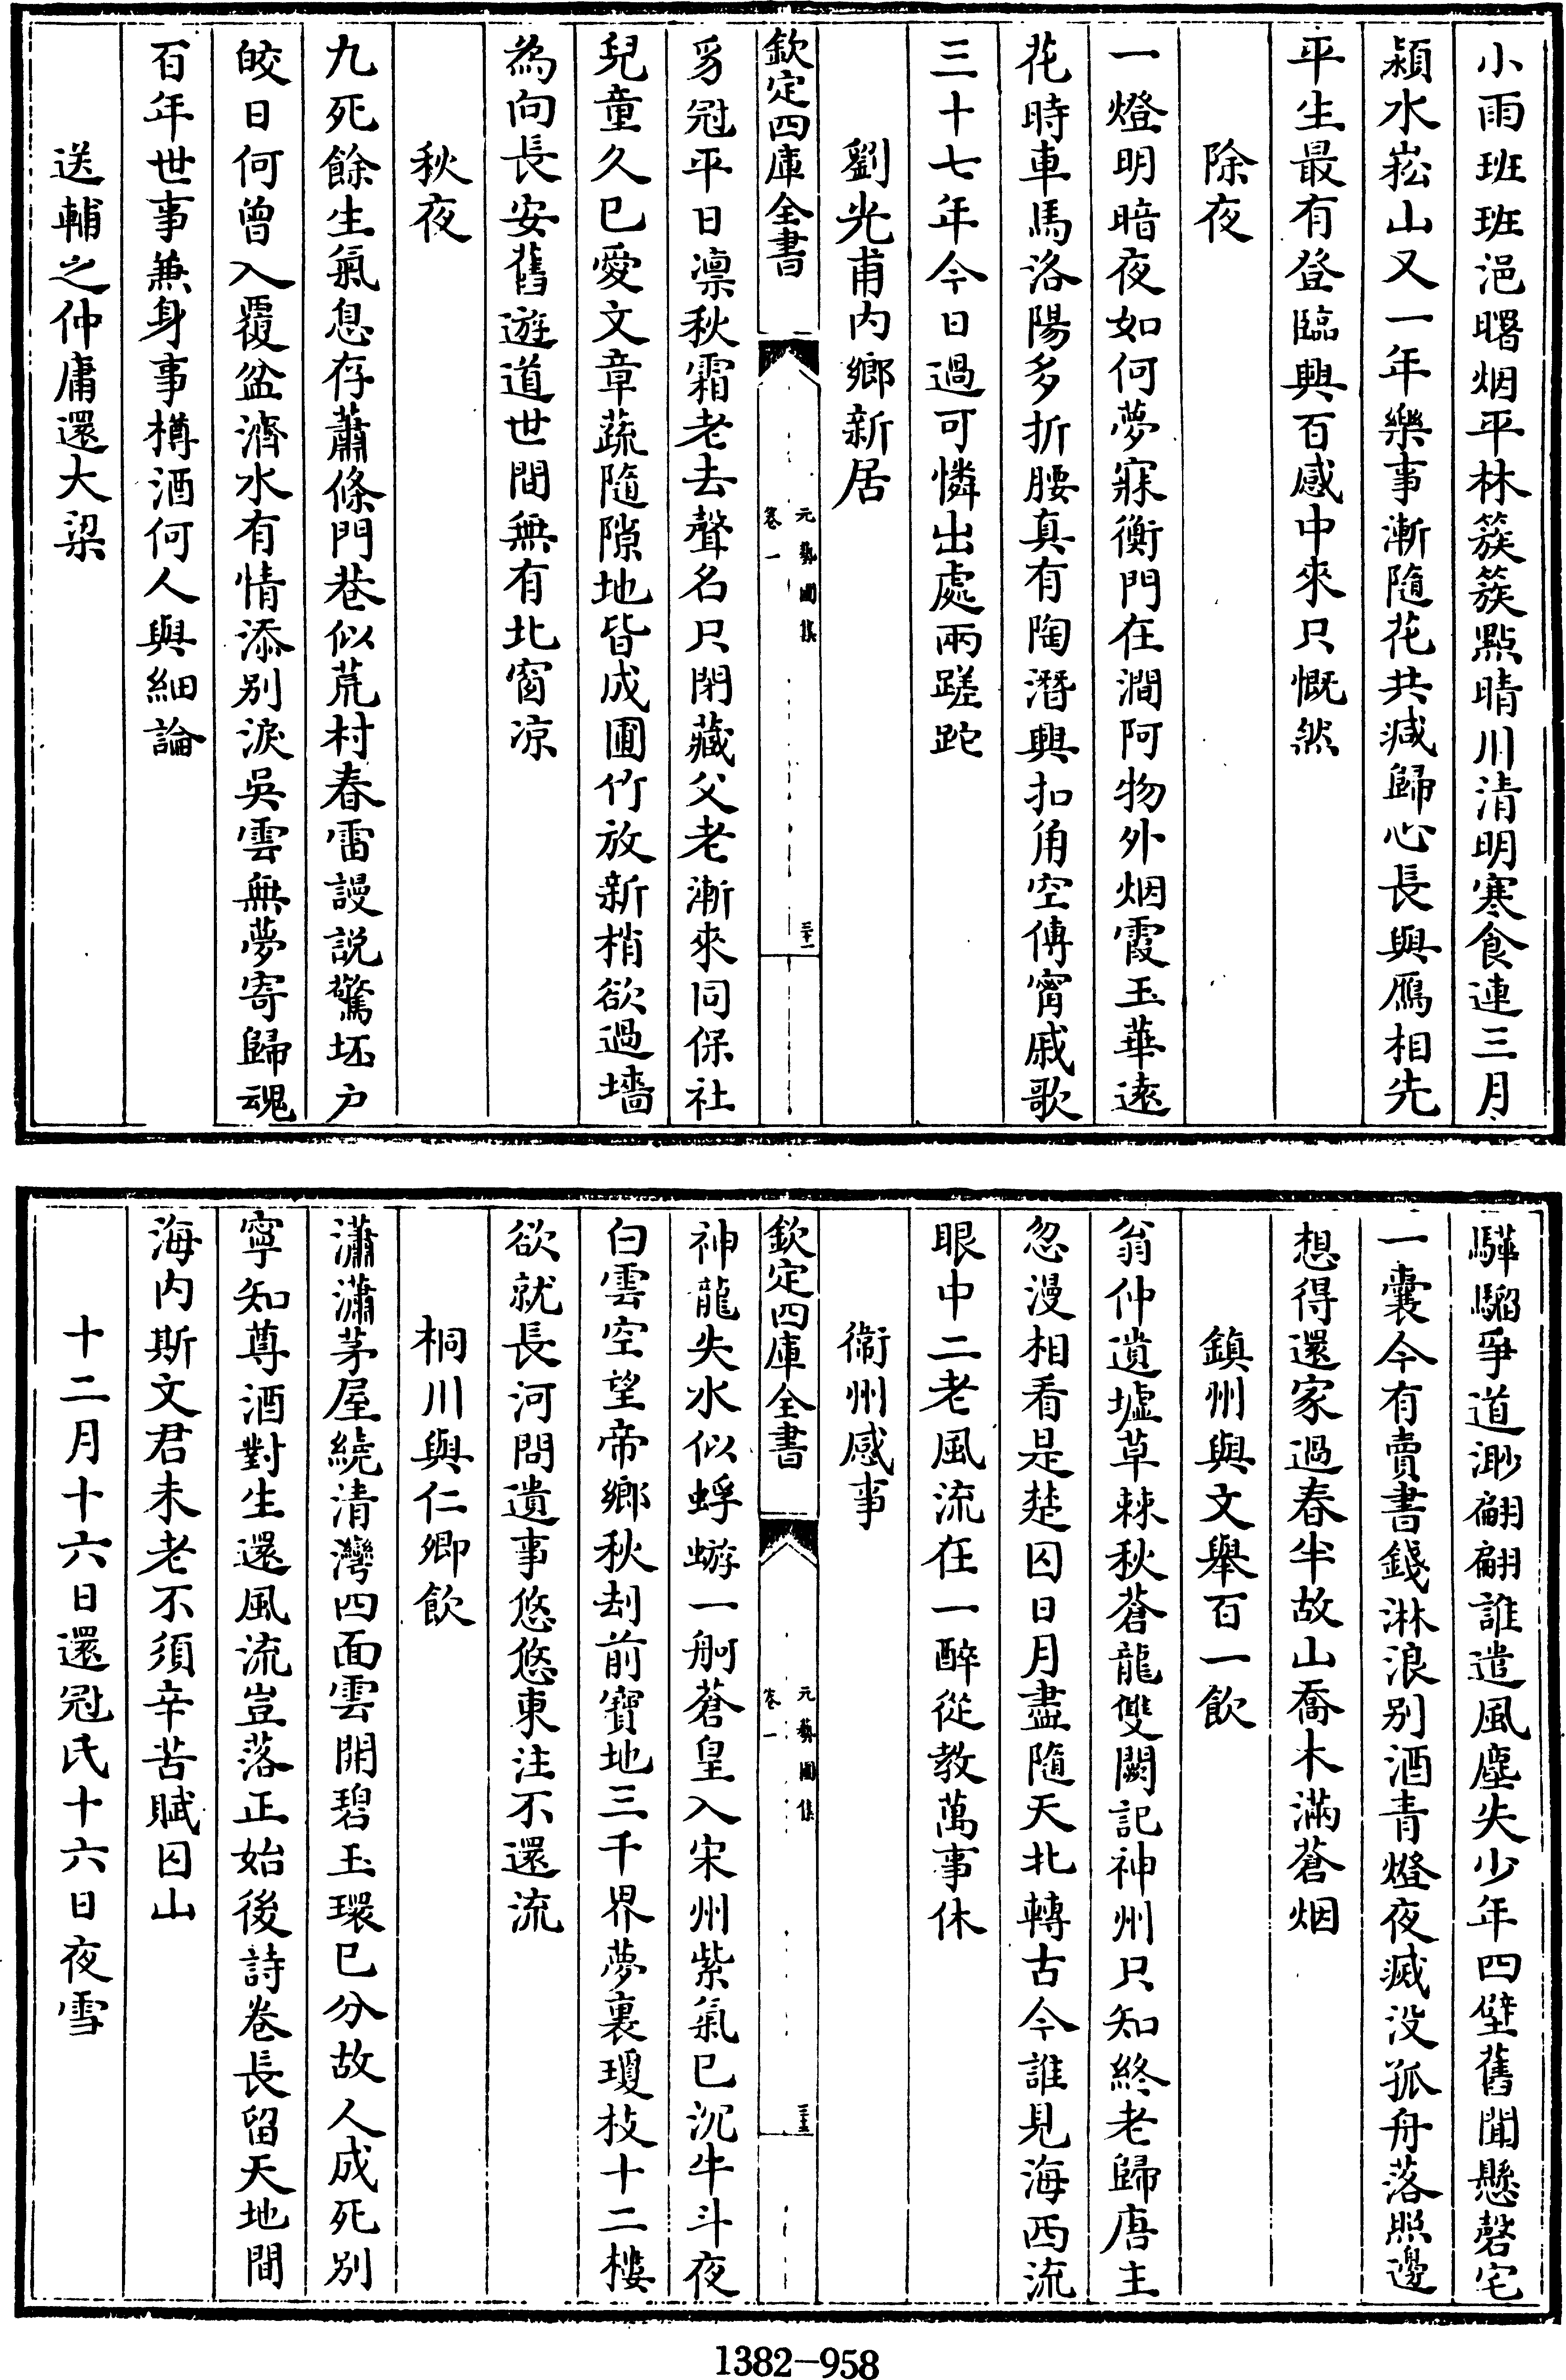 小雨班班浥曙烟平林簇簇點晴川清明寒食連三月
潁水崧山又一年樂事漸隨花共減歸心長與鴈相先
平生最有登臨興百感中來只慨然
除夜
一燈明暗夜如何夢寐衡門在澗阿物外烟霞玉華逺
花時車馬洛陽多折腰真有陶潛興扣角空傳甯戚歌
三十七年今日過可憐出處兩蹉跎
劉光甫内鄉新居
欽定四庫全書
元藝圃集
卷一
三十二
豸冠平日凛秋霜老去聲名只閉藏父老漸來同保社
兒童久已愛文章蔬隨隙地皆成圃竹放新梢欲過墻
為向長安舊遊道世間無有北窗凉
秋夜
九死餘生氣息存蕭條門巷似荒村春雷謾説驚坯户
皎日何曾入覆盆濟水有情添别淚吳雲無夢寄歸魂
百年世事兼身事樽酒何人與細論
送輔之仲庸還大梁
驊騮爭道渺翩翩誰遣風塵失少年四壁舊聞懸磬宅
一囊今有賣書錢淋浪别酒青燈夜滅没孤舟落照邊
想得還家過春半故山喬木滿蒼烟
鎮州與文舉百一飲
翁仲遺墟草棘秋蒼龍雙闕記神州只知終老歸唐主
忽漫相看是楚囚日月盡隨天北轉古今誰見海西流
眼中二老風流在一醉從教萬事休
衞州感事
欽定四庫全書
元藝圃集
卷一
三十三
神龍失水似蜉蝣一舸蒼皇入宋州紫氣已沉牛斗夜
白雲空望帝鄉秋刼前寶地三千界夢裏瓊枝十二樓
欲就長河問遺事悠悠東注不還流
桐川與仁卿飲
瀟瀟茅屋繞清灣四面雲開碧玉環已分故人成死别
寧知尊酒對生還風流豈落正始後詩卷長留天地間
海内斯文君未老不須辛苦賦囚山
十二月十六日還冠氏十六日夜雪
1382-958